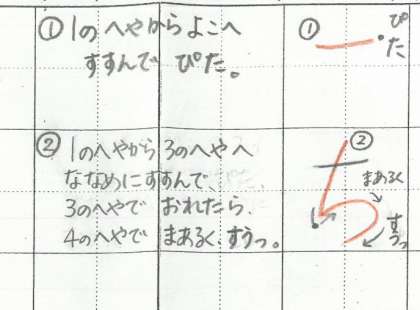 ① 1のへやからよこへ
すすんで ぴた。
① ぴた
② 1のへやから3のへやへ
ななめにすすんで、
3のへやで おれたら、
4のへやで まあるく、すうっ。
②
ち
まあるく
すうっ